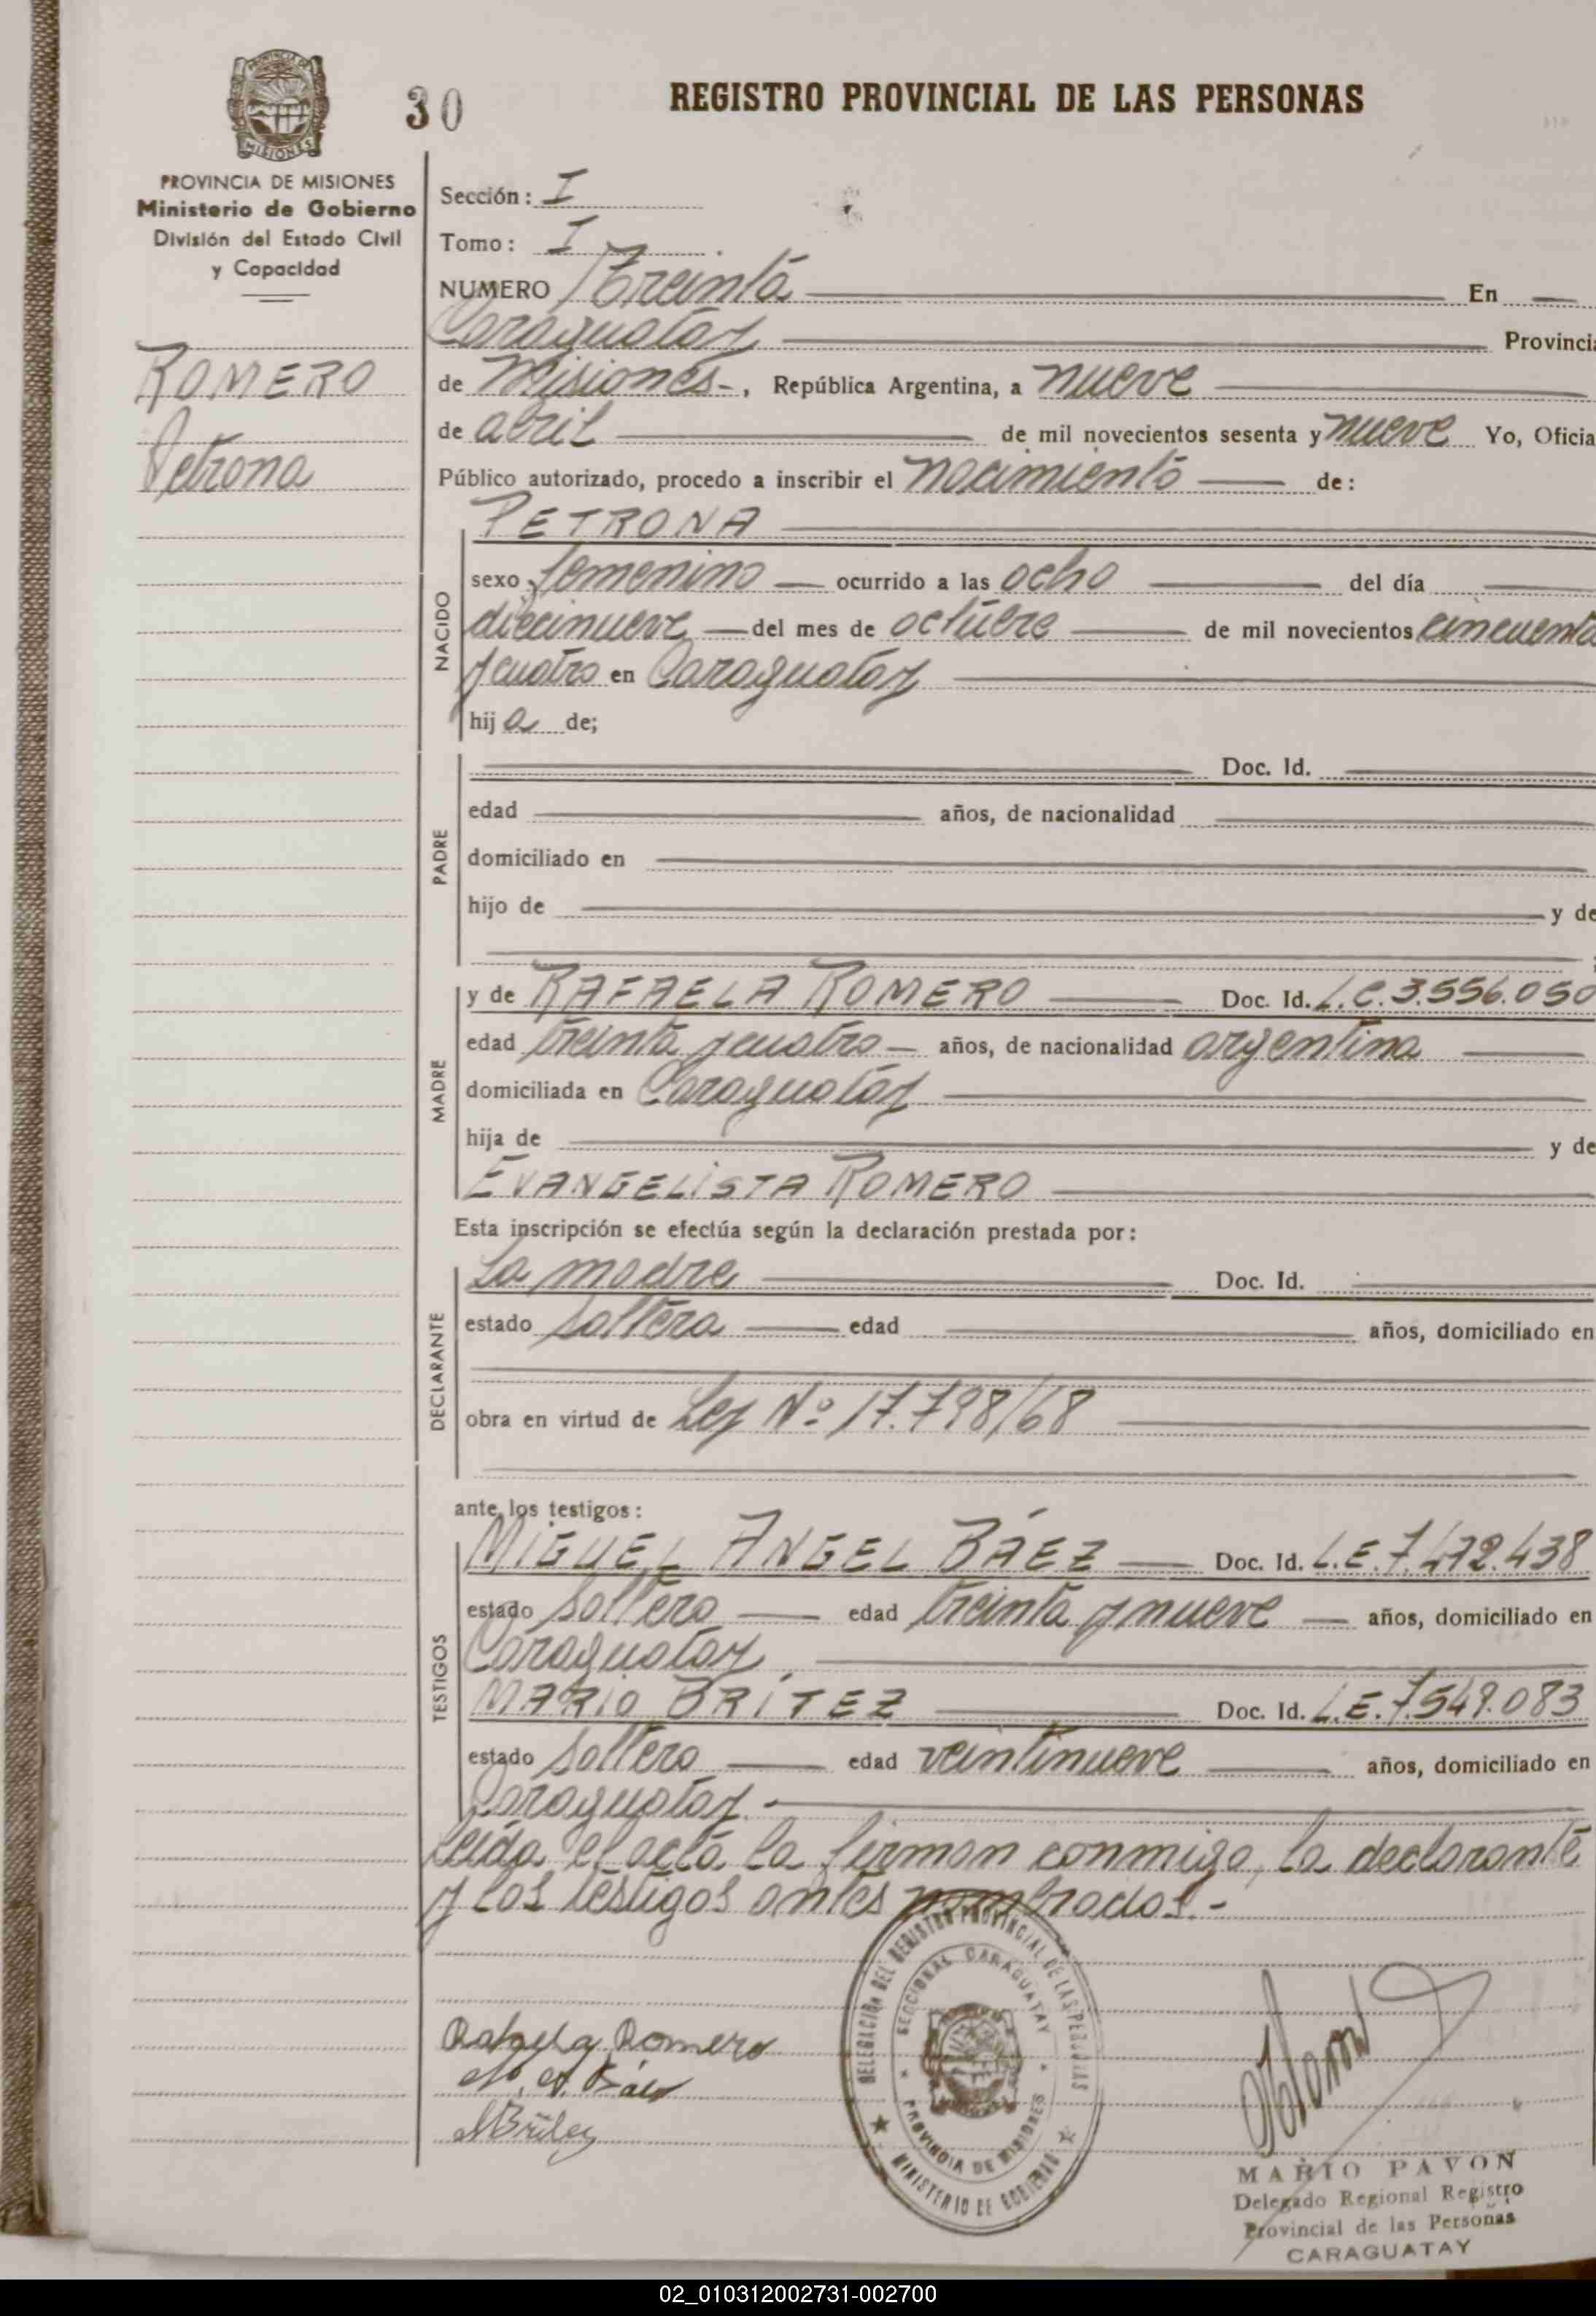 30
REGISTRO PROVINCIAL DE LAS PERSONAS
PROVINCIA DE MISIONES
MISIONES
PROVINCIA DE MISIONES
Ministerio de Gobierno
División del Estado Civil
y Capacidad
ROMERO
Petrona
Sección: I
Tomo: I
NUMERO Treinta En
Caraguatay Provincia
de Misiones-, República Argentina, a nueve
de abril de mil novecientos sesenta y nueve Yo, Oficia
Público autorizado, procedo a inscribir el nacimiento de:
NACIDO
PETRONA
sexo femenino ocurrido a las ocho del día
diecinueve del mes de octubre de mil novecientos cincuenta
y cuatro en Caraguatay
hija de;
PADRE
Doc. Id.
edad años, de nacionalidad
domiciliado en
hijo de y de
MADRE
y de RAFAELA ROMERO Doc. Id. L.C.3.556.050
edad treinta y cuatro años, de nacionalidad argentina
domiciliada en Caraguatay
hija de y de
EVANGELISTA ROMERO
Esta inscripción se efectúa según la declaración prestada por:
DECLARANTE
La madre Doc. Id.
estado soltera edad años, domiciliado en
obra en virtud de Ley Nº 17.798/68
ante los testigos:
TESTIGOS
MIGUEL ANGEL BÁEZ Doc. Id. L.E.7.472.438
estado soltero edad treinta y nueve años, domiciliado en
Caraguatay
MARIO BRÍTEZ Doc. Id. L.E.7.549.083
estado soltero edad veintinueve años, domiciliado en
Caraguatay.-
Leída el acta la firman conmigo, la declarante
y los testigos antes nombrados.-
DELEGACIÓN DEL REGISTRO PROVINCIAL DE LAS PERSONAS
SECCIONAL CARAGUATAY
PROVINCIA DE MISIONES
MINISTERIO DE GOBIERNO
Rafaela Romero
M. A. Báez
MBritez
MARIO PAVON
Delegado Regional Registro
Provincial de las Personas
CARAGUATAY
02_010312002731-002700